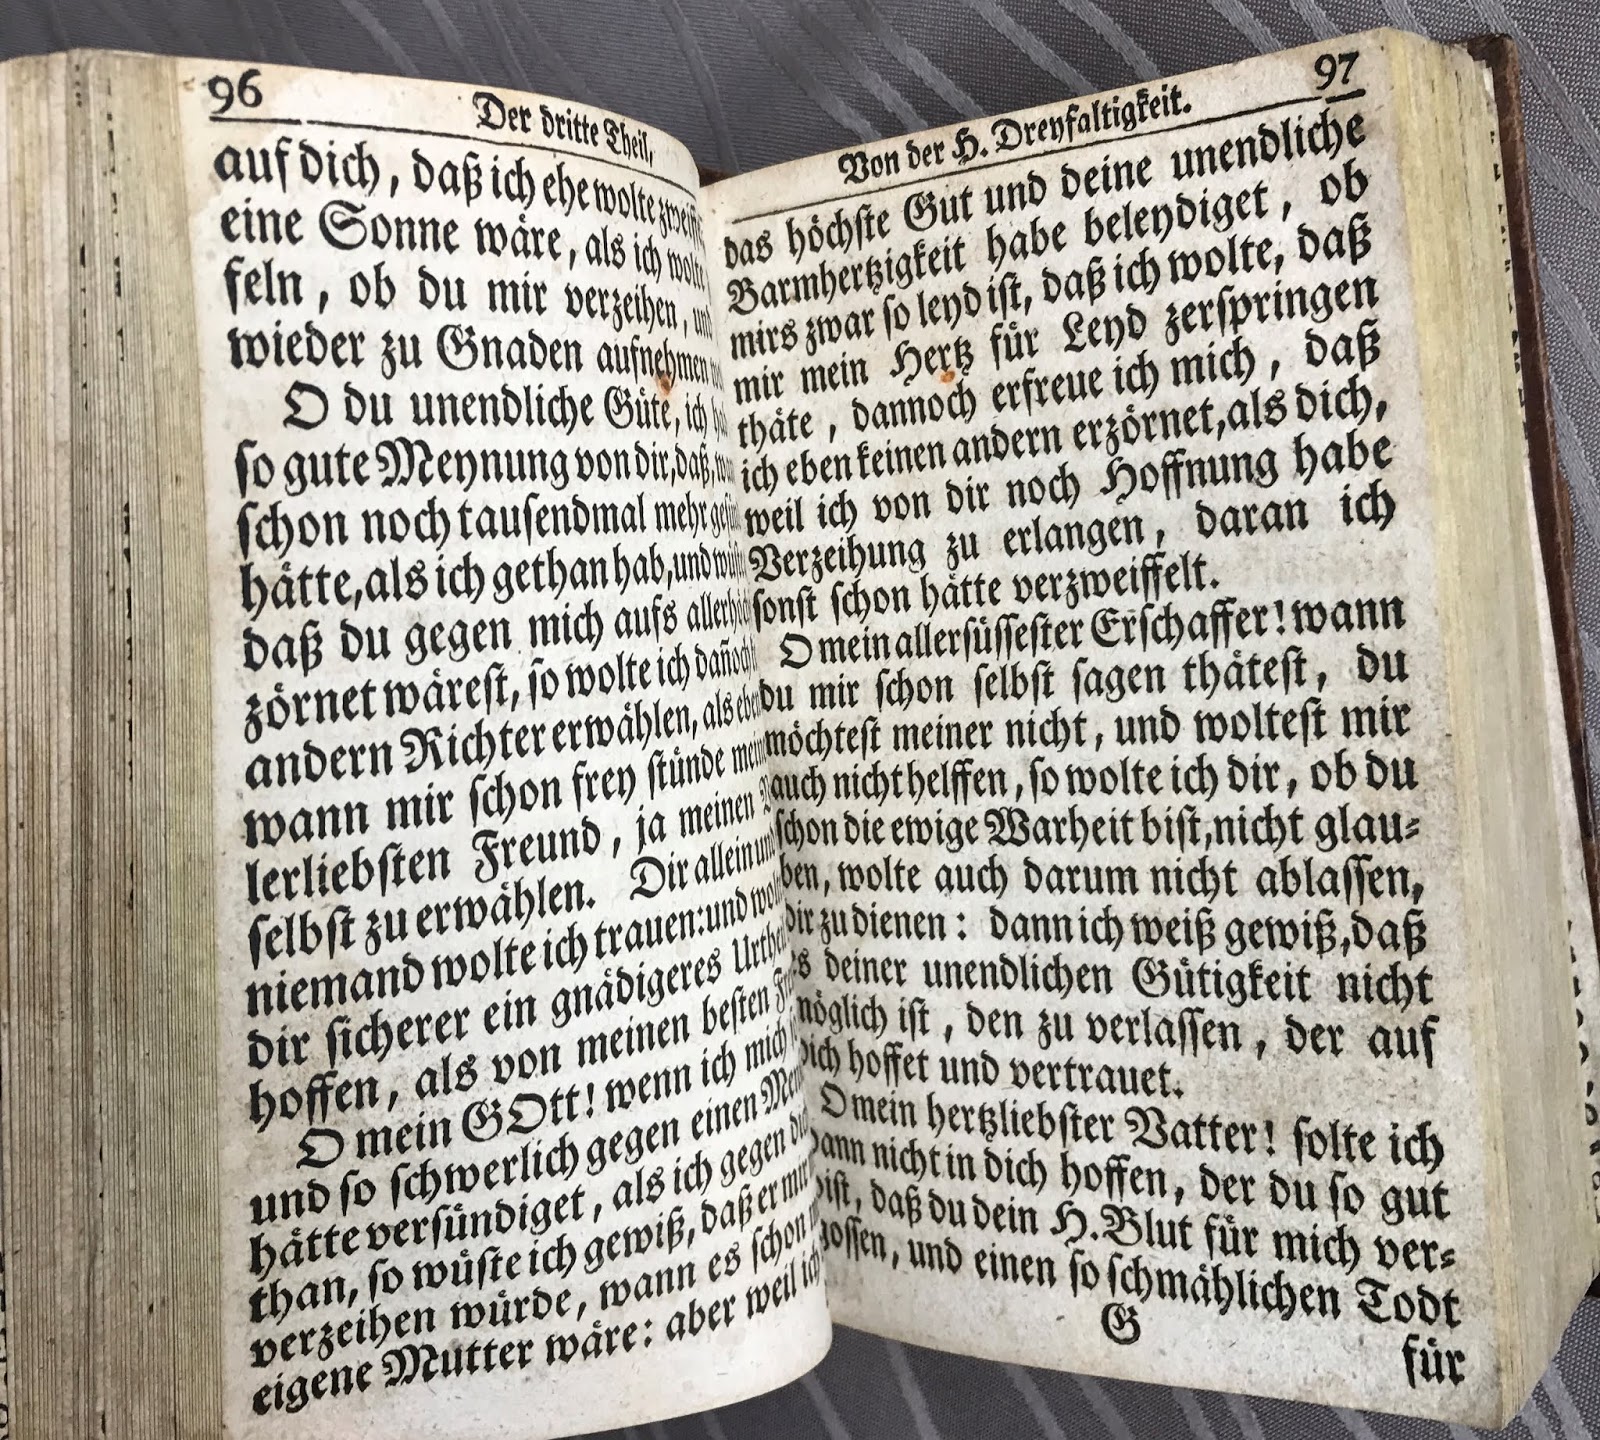 96
Der dritte Theil,
auf dich, daß ich ehe wolte
eine Sonne wäre, als ich wolte
feln, ob du mir verzeihen, und
wieder zu Gnaden aufnehmen
O du unendliche Güte, ich
so gute Meynung von dir, daß,
schon noch tausendmal mehr
hätte, als ich gethan hab, und
daß du gegen mich aufs
zörnet wärest, so wolte ich dañoch
andern Richter erwählen, als eben
wann mir schon frey stünde
lerliebsten Freund, ja meinen
selbst zu erwählen. Dir allein und
niemand wolte ich trauen: und
dir sicherer ein gnädigeres
hoffen, als von meinen besten
O mein GOtt! wenn ich mich
und so schwerlich gegen einen
hätte versündiget, als ich gegen
than, so wüste ich gewiß, daß er mir
verzeihen würde, wann es schon
eigene Mutter wäre: aber weil ich
Von der H. Dreyfaltigkeit.
97
das höchste Gut und deine unendliche
Barmhertzigkeit habe beleydiget, ob
mirs zwar so leyd ist, daß ich wolte, daß
mir mein Hertz für Leyd zerspringen
thäte, dannoch erfreue ich mich, daß
ich eben keinen andern erzörnet, als dich,
weil ich von dir noch Hoffnung habe
Verzeihung zu erlangen, daran ich
sonst schon hätte verzweiffelt.
O mein allersüssester Erschaffer! wann
du mir schon selbst sagen thätest, du
möchtest meiner nicht, und woltest mir
auch nicht helffen, so wolte ich dir, ob du
schon die ewige Warheit bist, nicht glau-
ben, wolte auch darum nicht ablassen,
dir zu dienen: dann ich weiß gewiß, daß
es deiner unendlichen Gütigkeit nicht
möglich ist, den zu verlassen, der auf
dich hoffet und vertrauet.
O mein hertzliebster Vatter! solte ich
dann nicht in dich hoffen, der du so gut
bist, daß du dein H. Blut für mich ver-
gossen, und einen so schmählichen Todt
G
für